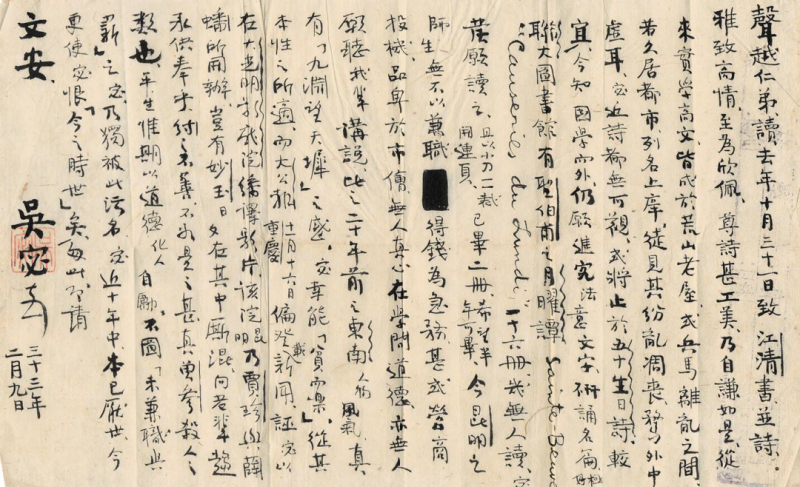 聲越仁弟讀去年十月三十一日致 江清書並詩。
雅致高情。至為欣佩。尊詩甚工美。乃自謙如是。從
來實學高文皆成於荒山老屋或兵馬離亂之間。
若久居都市列名上庠。徒見其紛亂凋喪。努力外中
虛耳。宓近詩都無可觀。或將止於五十生日詩。較
宜。今知 國學而外。仍願進究法意文字。研誦名篇。
聯大圖書館有聖伯甫之月曜譚 Sainte-Beuve
"Causeries du Lundi" 十六冊我無人讀。宓
發願讀之。且以小刀一裁用連頁。已畢二冊。希望半年可畢。今昆明之
師生無不以兼職 得錢為急務。甚或營商
投機。品卑於市儈。無人真心在學問道德。亦無人
願聽我輩講說。此之二十年前之東南 風氣。真
有「九淵望天墀」之感。宓幸能「貧而樂」。從其
本性之所適。而大公報重慶十一月十六日偏登新聞 誣宓以
在大光明戲院繙譯影片。該院昆明乃賈珍與薛
蟠所開辦。豈有妙玉日夕在其中廝混。向若輩
求供奉乎。
類也。平生惟期以道德化人 自勵。不圖「未兼職與
薪」之宓乃獨被此污名。宓近十年中。本已厭世。今
更使宓恨「今之時世」矣。匆此。即請
文安。
吳宓
三十三年
二月九日